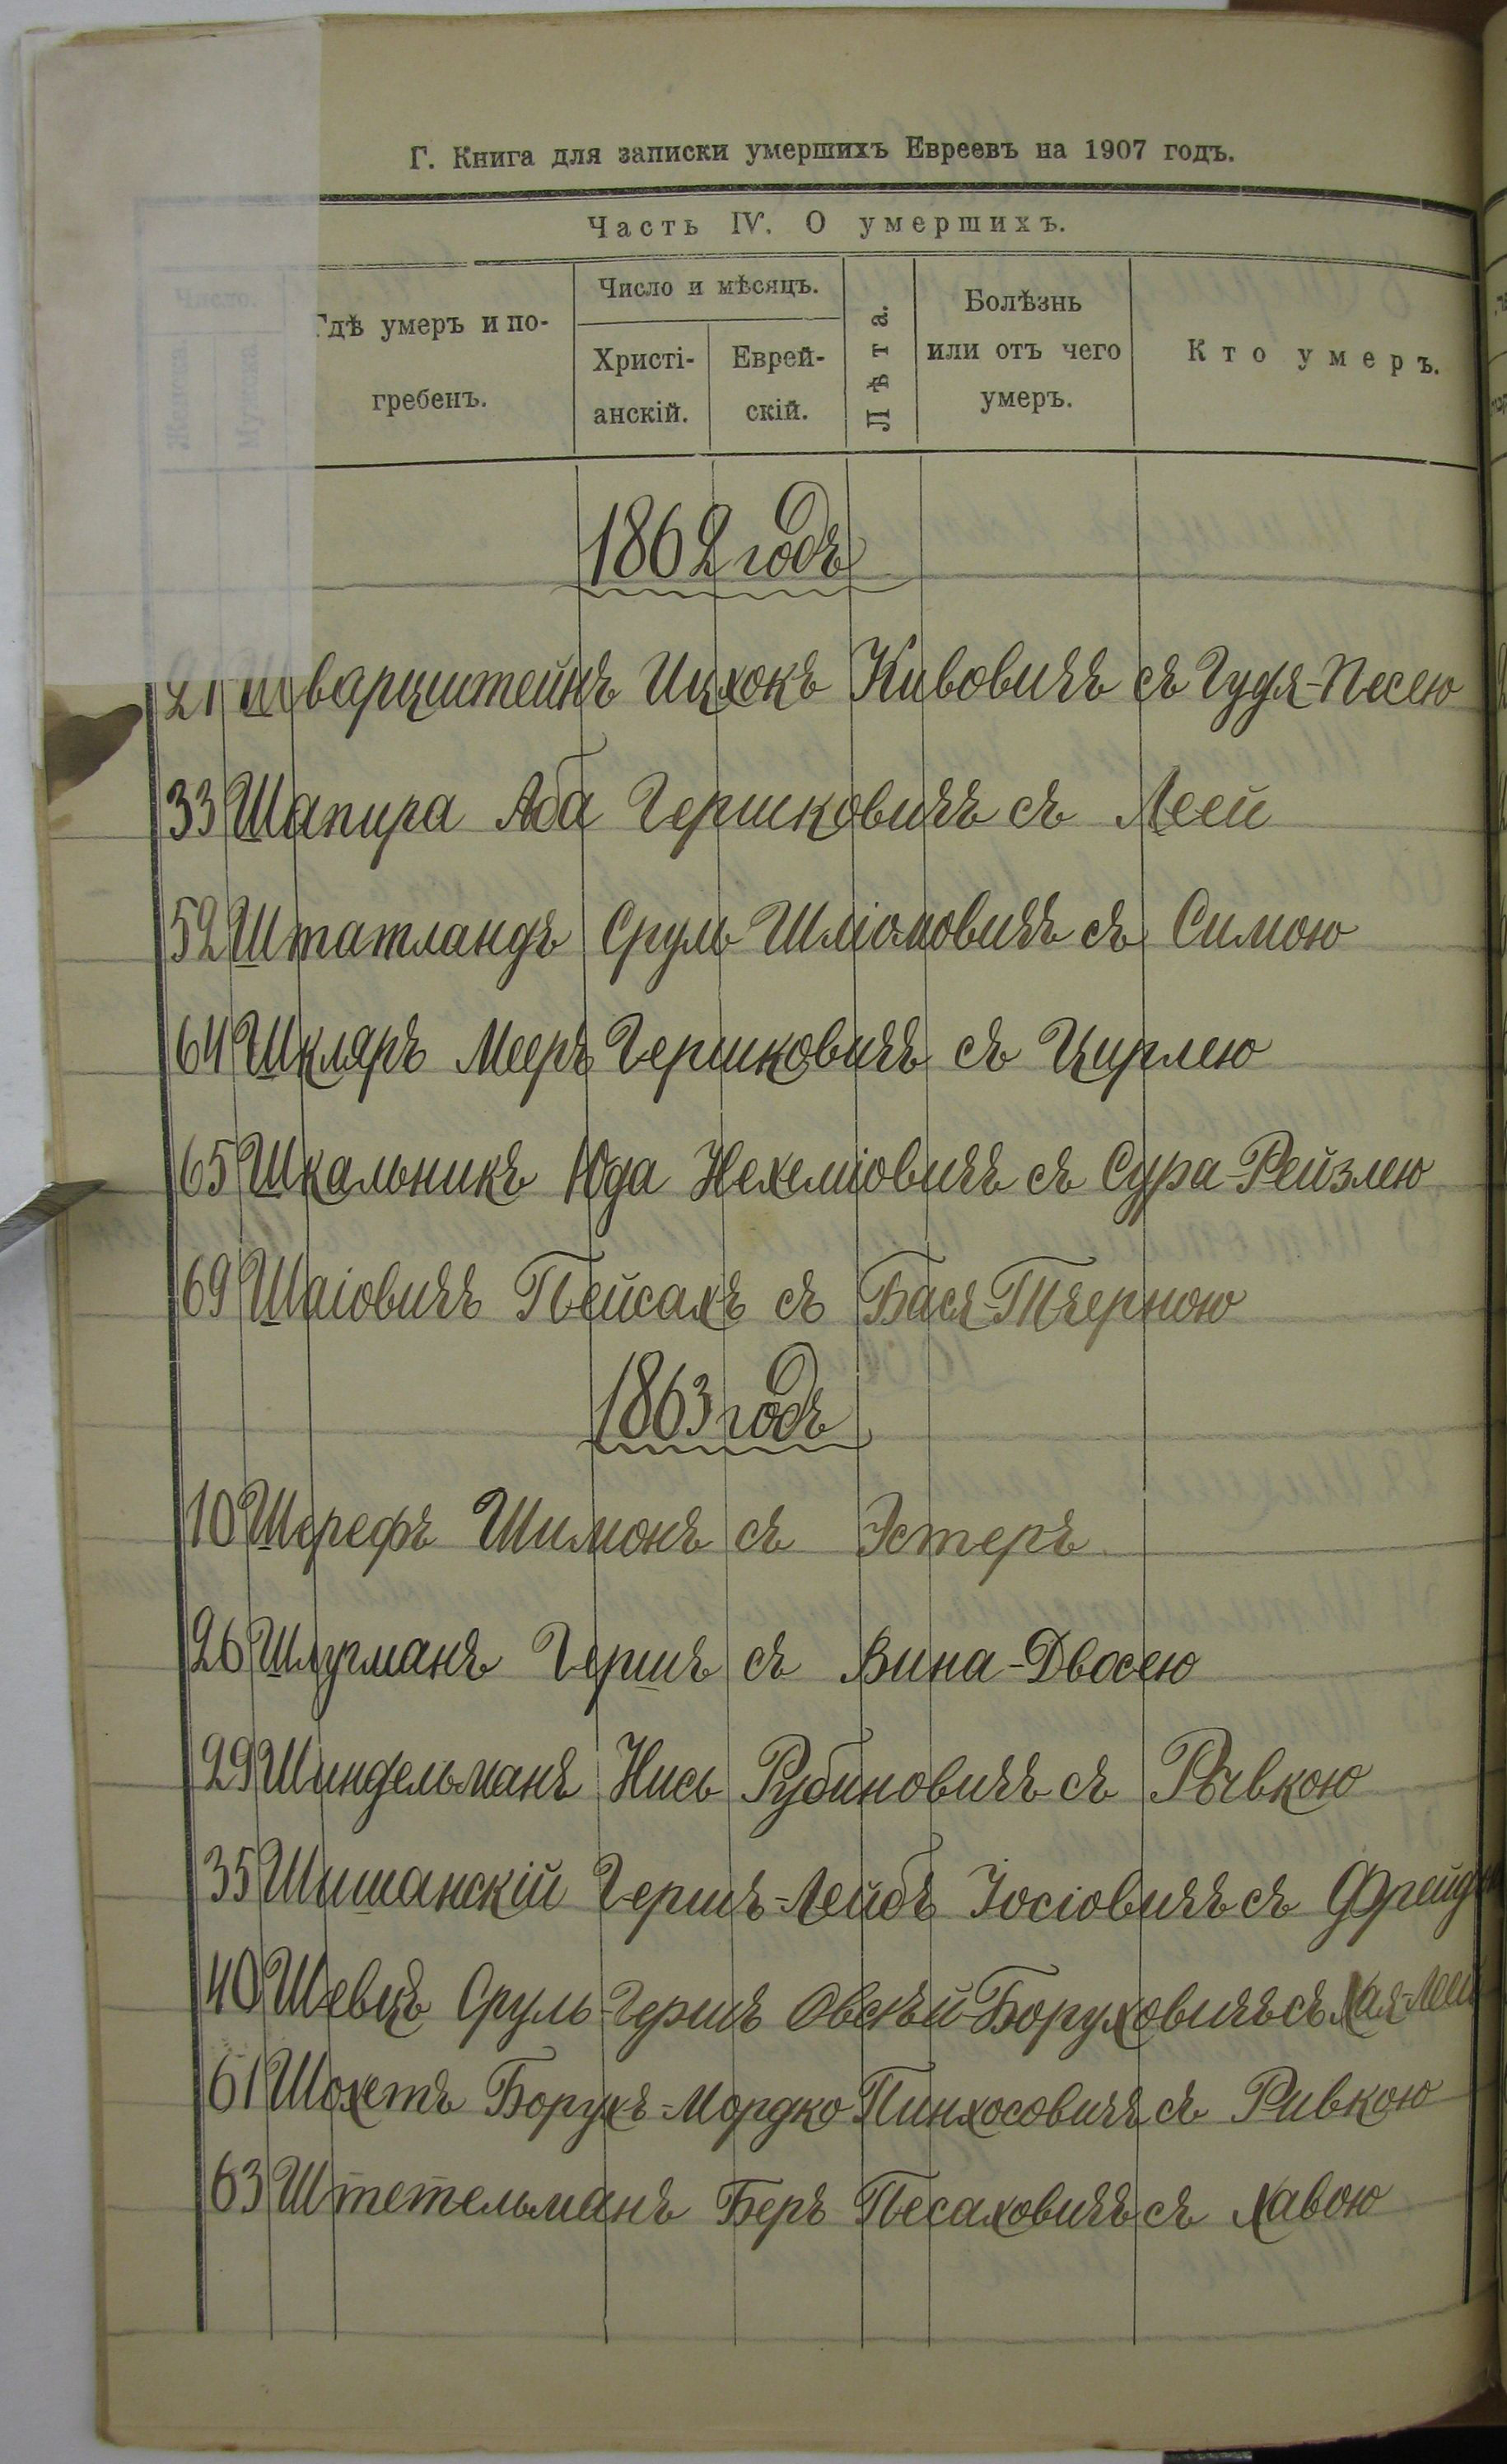 Г. Книга для записки умершихъ Евреевъ на 1907 годъ.
Часть IV. О умершихъ.
Число.
Женск.
Мужеска.
Гдѣ умеръ и по-
гребенъ.
Число и мѣсяцъ.
Христі-
анскій.
Еврей-
скій.
Лѣта.
Болѣзнь
или отъ чего
умеръ.
Кто умеръ.
1862 годъ
21 Шварцштейнъ Ицхокъ Кивовичъ съ Гудя-Песею
33 Шапира Аба Гершковичъ съ Леей
52 Штатландъ Сруль Шліомовичъ съ Симою
64 Шкляръ Мееръ Гершковичъ съ Цирлею
65 Шкальникъ Юда Нехеміовичъ съ Сура-Рейзлею
69 Шаіовичъ Пейсахъ съ Бася-Тчерною
1863 годъ
10 Шерефъ Шимонъ съ Эстеръ
26 Шлугманъ Гершъ съ Вина-Двосею
29 Шиндельманъ Нись Рубиновичъ съ Рывкою
35 Шишанскій Гершъ-Лейбъ Іосіовичъ съ
40 Шевцъ Сруль-Гершъ Овсѣй-Боруховичъ съ Хая-Леей
61 Шохетъ Борухъ-Мордко Пинхосовичъ съ Ривкою
63 Штетельманъ Беръ Песаховичъ съ Хавою